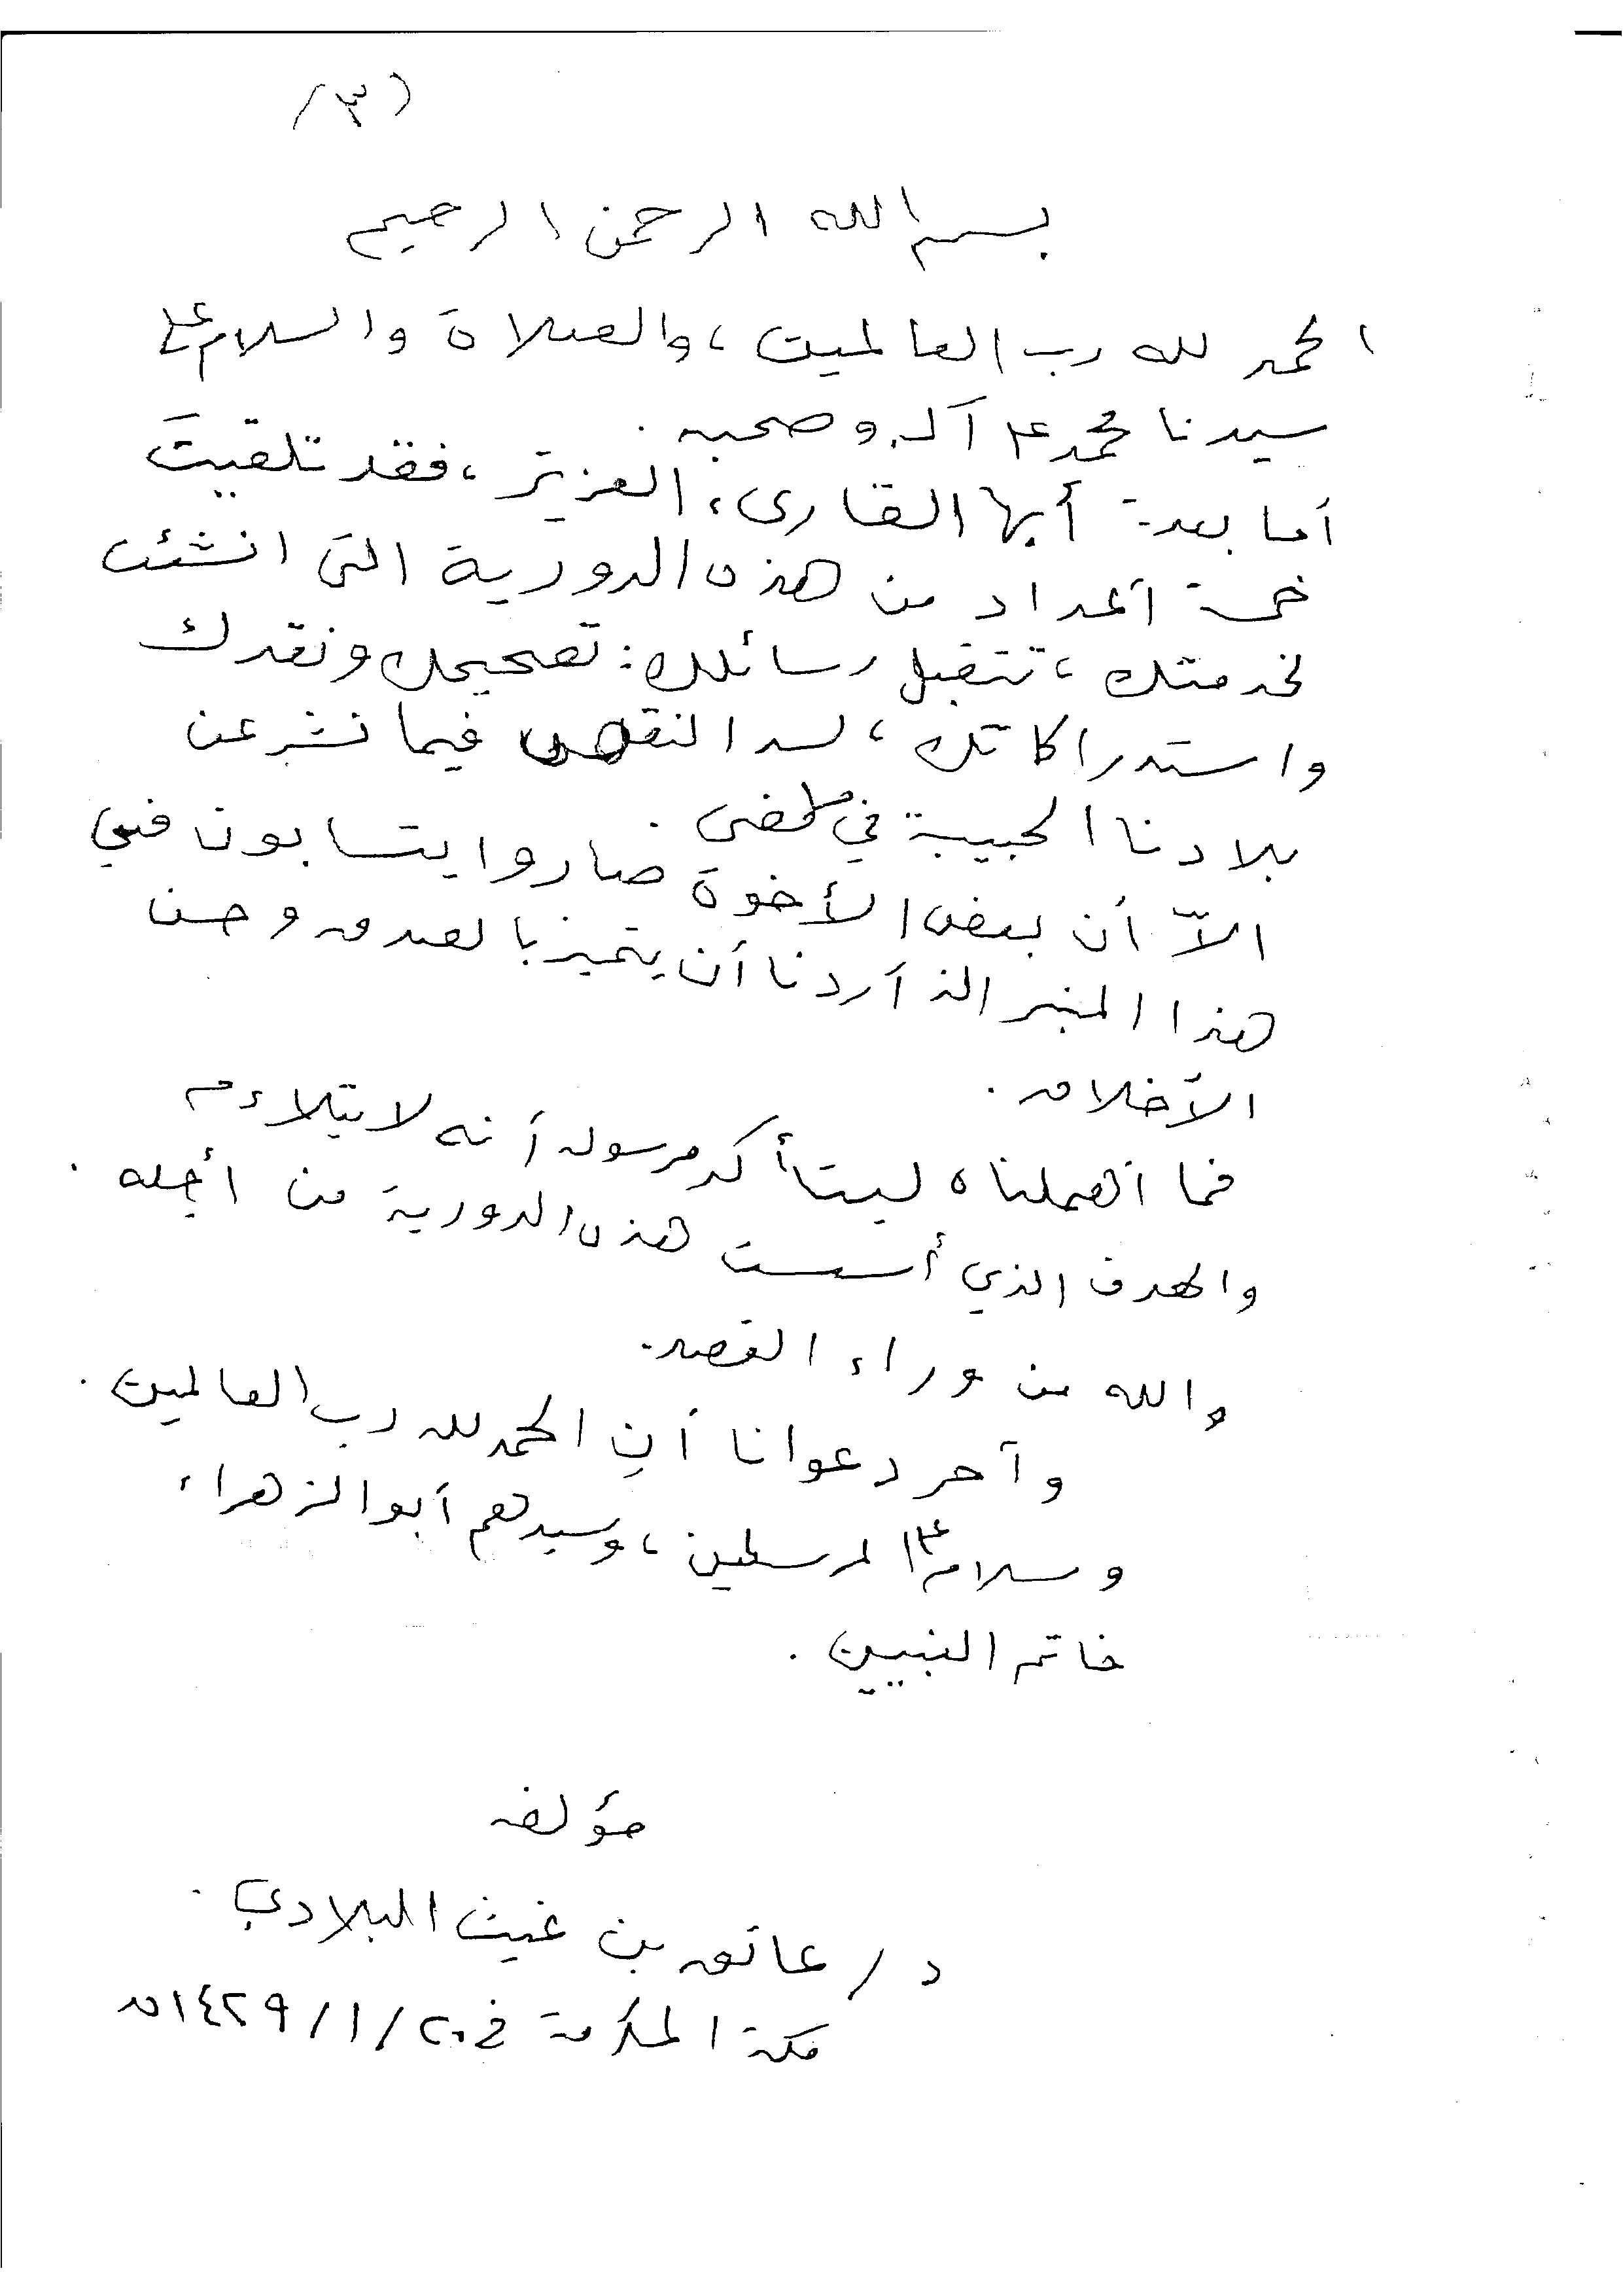 (٣)
بسم الله الرحمن الرحيم
الحمد لله رب العالمين، والصلاة والسلام على
سيدنا محمد وعلى آله وصحبه .
أما بعد: أيها القارىء العزيز، فقد تلقيتَ
خمسة أعداد من هذه الدورية التي انشئت
لخدمتك، تتقبل رسائلك: تصحيحك ونقدك
واستدراكاتك، لسد النقص فيما نشر عن
بلادنا الحبيبة في ما مضى .
الاّ أن بعض الأخوة صاروا يتسابون في
هذا المنبر الذ أردنا أن يتميز بالصدق وحسن
الأخلاق .
فما أهملناه ليتأكد مرسوله أنه لا يتلاءم
والهدف الذي أسست هذه الدورية من أجله .
والله من وراء القصد.
وآخر دعوانا أن الحمد لله رب العالمين .
وسلام على المرسلين، وسيدهم أبو الزهراء
خاتم النبيين .
مؤلفه
د/ عاتق بن غيث البلادي .
مكة المكرمة في ٢٠/١/١٤٢٩ه